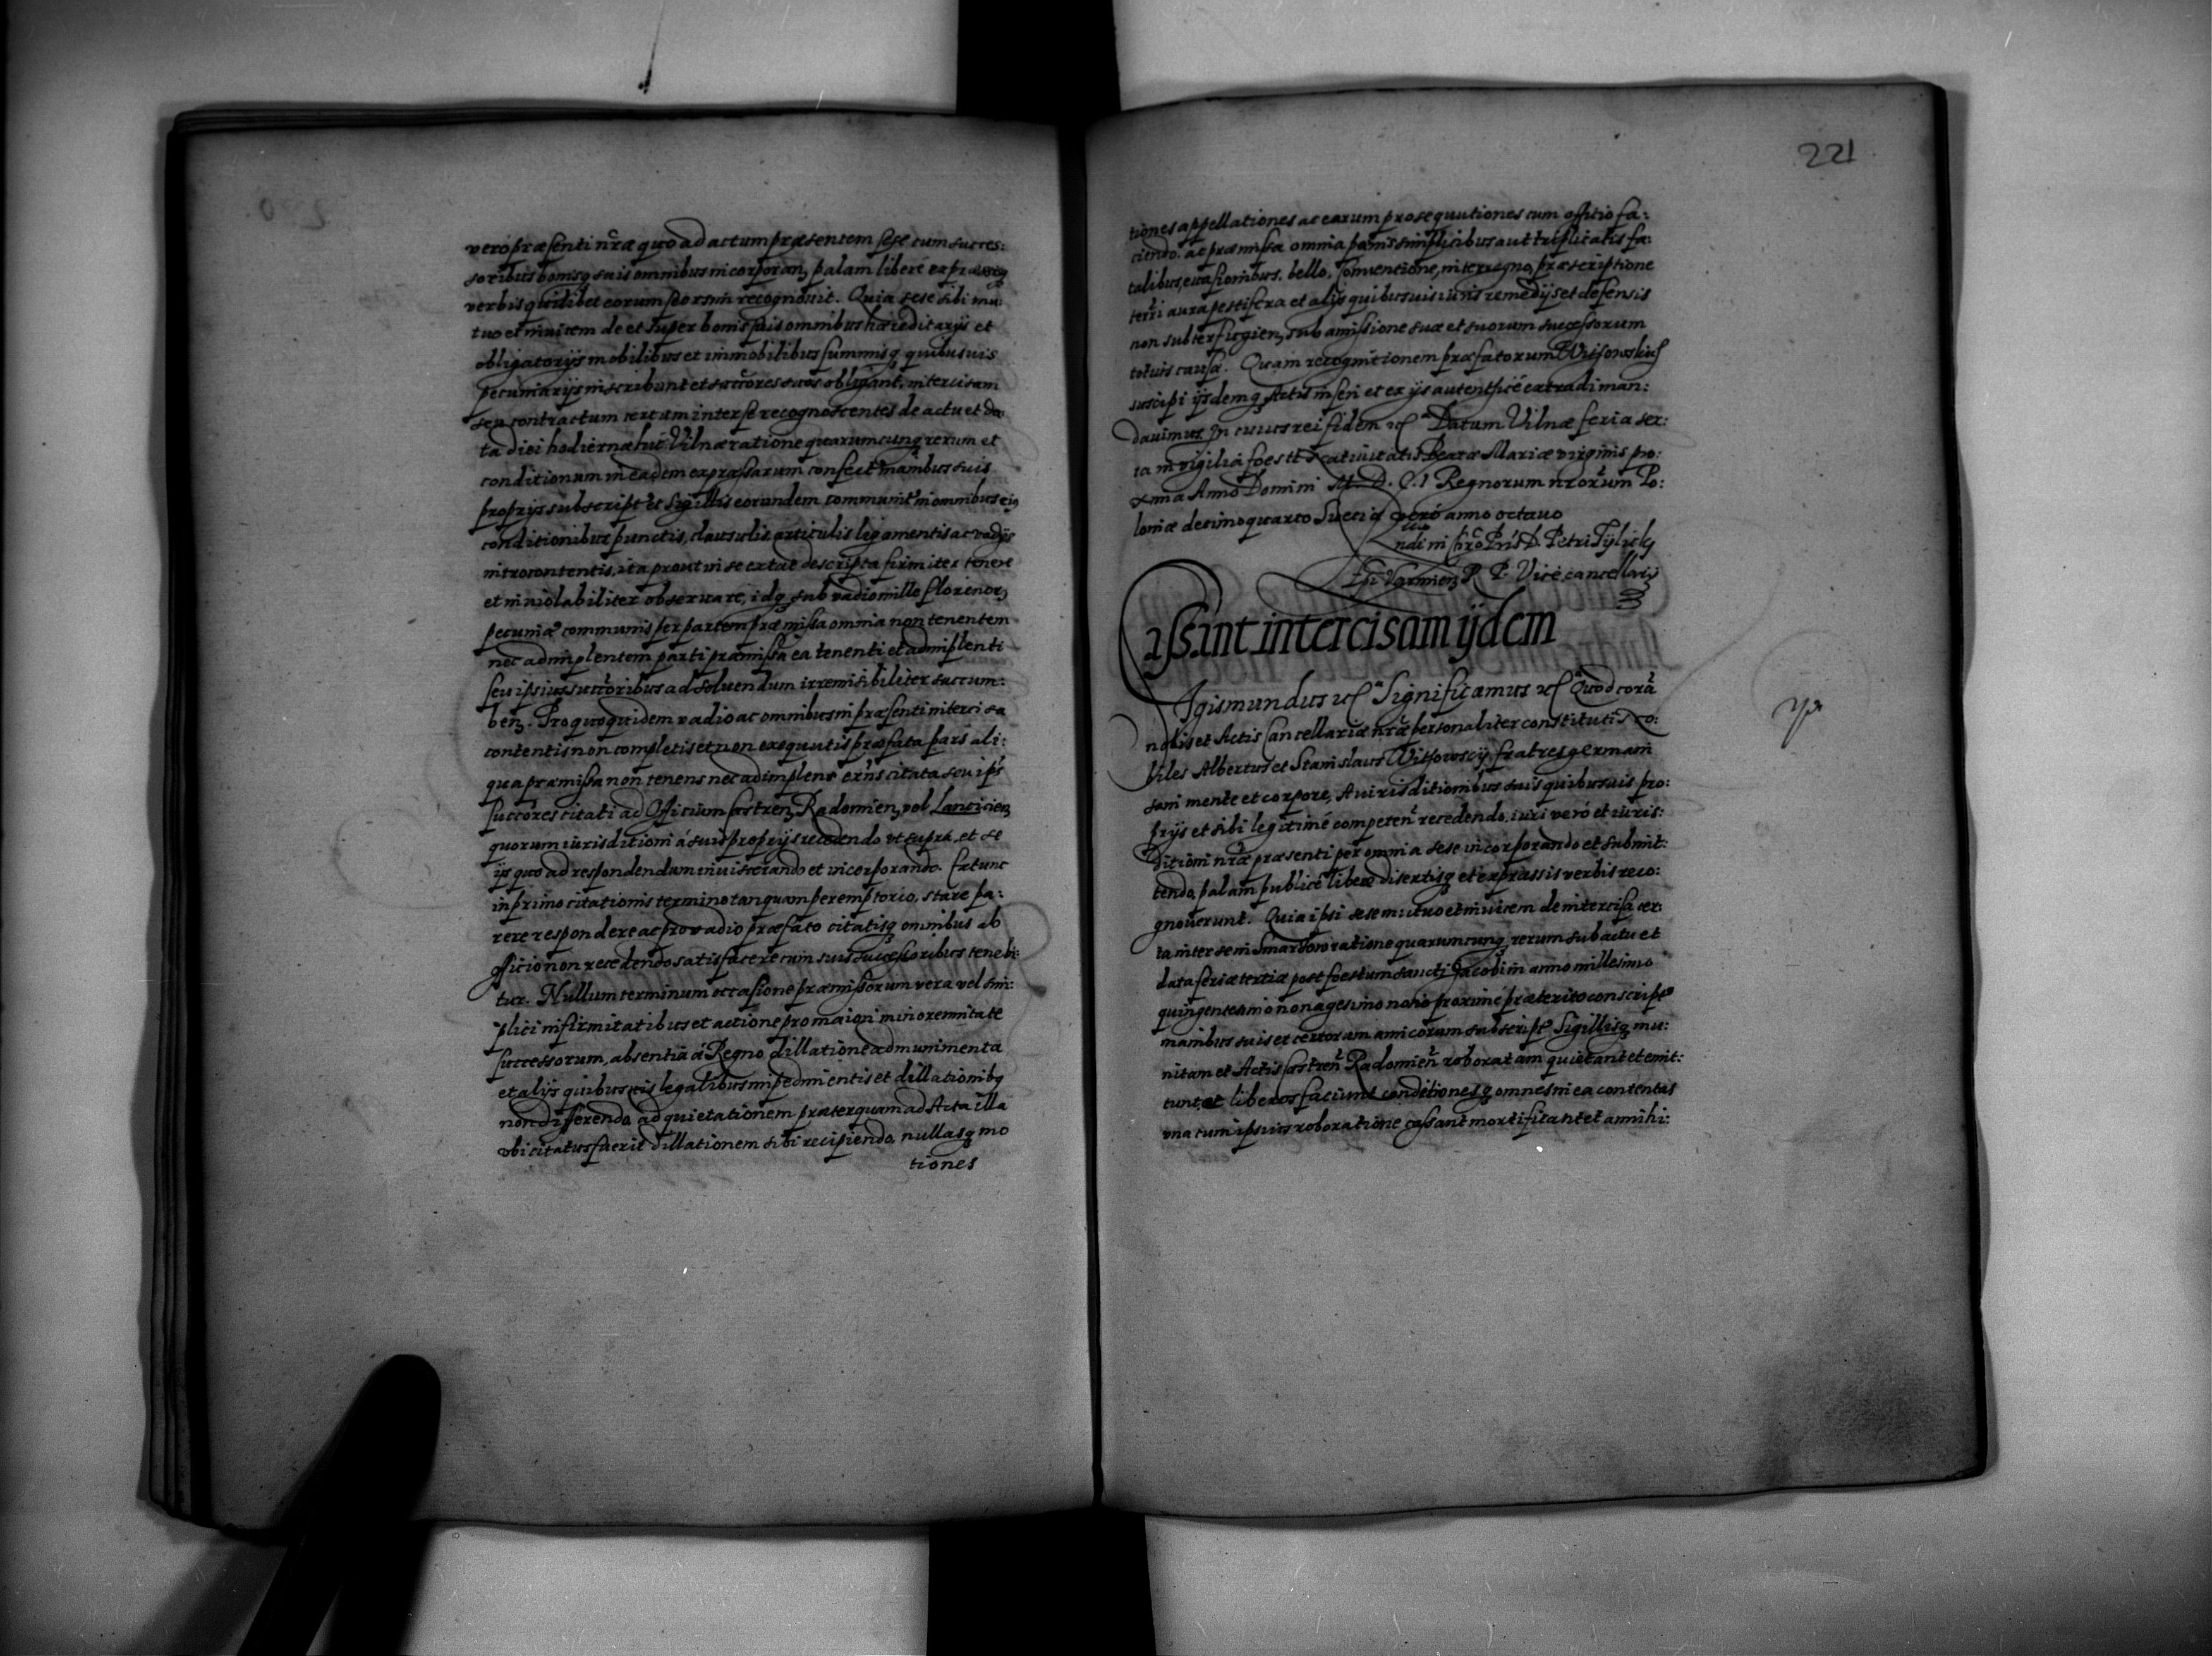 vero præsenti nrãe quo ad actum præsentem sese cum succes:
soribus bonisq suis omnibus incorporan, palam libere expressisq
verbis quilibet eorum seorsim recognouit. Quia sese sibi mu:
tuo et inuicem de et super bonis suis omnibus hæreditarijs et
obligatorijs mobilibus et immobilibus summisq quibusuis
pecuniarijs inscribunt et succores suos obligant, intercisam
seu contractum certam inter se recognoscentes de actu et da
ta diei hodiernæ huc Vilnæ ratione quarumcunq rerum et
conditionum in eadem expressarum confect manibus suis
proprijs subscript et sigillis eorundem communit in omnibus eis
conditionibus punctis, clausulis articulis ligamentis ac vadijs
introcontentis, ita prout in se extat descripta firmiter tenere
et inuiolabiliter obseruare, idq sub vadio mille florenor
pecuniæ communis per partem præmissa omnia non tenentem
nec adimplentem parti præmissa ea tenenti et adimplenti
seu ipsius succoribus ad soluendum irremisibiliter succum:
ben. Pro quo quidem vadio ac omnibus in præsenti intercisa
contentis non completis et non exequutis præfata pars ali:
qua præmissa non tenens nec adimplens exns citata seu ips
succores citati ad Officium Castren Radomien, vel Lancicien
quorum iurisditioni á suis proprijs recedendo vt supra, et se
ijs quo ad respondendum inuiscerando et incorporando. Extunc
in primo citationis termino tanquam peremptorio, stare pa:
rere respondere ac pro vadio præfato citatisq omnibus ab
officio non recedendo satisfacere cum suis successoribus tenebi:
tur. Nullum terminum occasione præmissorum vera vel sim:
plici infirmitatibus et actione pro maiori minorennitate
successorum, absentia á Regno dillatione ad munimenta
et alijs quibusuis legalibus impedimentis et dillationibq
non differendo, ad quietationem præterquam ad Acta illa
vbi citatus fuerit dillationem sibi recipiendo, nullasq mo
tiones
221
tiones appellationes ac earum prosequutiones cum officio fa:
ciendo. ac præmissa omnia pænis simplicibus aut triplicatis fa:
talibus, euasionibus. bello, Conuentione, interregno, præscriptione
terri aura pestifera et alijs quibusuis iuris remedijs et defensis
non subterfugien, sub amissione suæ et suorum successorum
totius causæ. Quam recognitionem præfatorum Witsowskich
suscipi ijsdemq Actis inseri et ex ijs autenthicé extradi man:
dauimus. In cuius rei fidem etc Datum Vilnæ feria sex:
ta in vigilia foesti Natiuitatis Beatæ Mariæ virginis pro:
xima Anno Domini M. D. C. I Regnorum nrorum Po:
loniæ decimoquarto Sueciæ veró anno octauo
Rndi in Chro Pris D. Petri Tylicky
Epi Varmien R P. Vicecancellarij
Cassant intercisam ijdem
Sigismundus etc Significamus etc Quod corã
nobis et Actis Cancellariæ nrãe personaliter constituti no:
biles Albertus et Stanislaus Witsowscij, fratres germani
sani mente et corpore, A iurisditionibus suis quibusuis pro:
prijs et sibi legitimé competen recedendo. iuri veró et iuris:
ditioni nrãe præsenti per omnia sese incorporando et submit:
tendo, palam publicé liberé disertisq et expressis verbis reco:
gnouerunt. Quia ipsi sese mutuo et inuicem de intercisa cer:
ta inter se in ratione quarumcunq rerum sub actu et
data feriæ tertiæ post foestum sancti Jacobi in anno millesimo
quingentesimo nonagesimo nono proximé præterito conscript
manibus suis et certorum amicorum subscript Sigillisq mu:
nitam et Actis Castren Radomien roboratam quietant et emit:
tunt, et liberos faciunt conditionesq omnes in ea contentas
vna cum ipsius roboratione cassant mortificant et annihi: